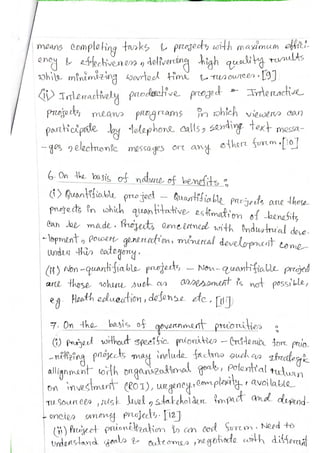 means completing tasks & projects with maximum effici-
ency & effectiveness, delivering high quality results
while minimizing wasted time & resources. [9]
(ii) Interactively productive project - Interactive
projects means programs in which viewers can
participate by telephone calls, sending text messa-
-ges, electronic messages or any other forum. [10]
6. On the basis of nature of benefits :
(i) Quantifiable project - Quantifiable projects are those
projects in which quantitative estimation of benefits
can be made. Projects concerned with industrial deve-
-lopment, power generation, mineral development come
under this category.
(ii) Non-quantifiable projects - Non-quantifiable project
are those where such as assessment is not possible,
e.g. Health education, defense etc. [11]
7. On the basis of government priorities :
(i) Project without specific priorities - Criteria for prio-
-ritizing projects may include factors such as strategic
alignment with organizational goals, potential return
on investment (ROI), urgency, complexity, available
resources, risk level, stakeholder impact and depend-
-encies among projects. [12]
(ii) Project prioritization to can cost forum. Need to
understand goals & outcomes, negotiate with different